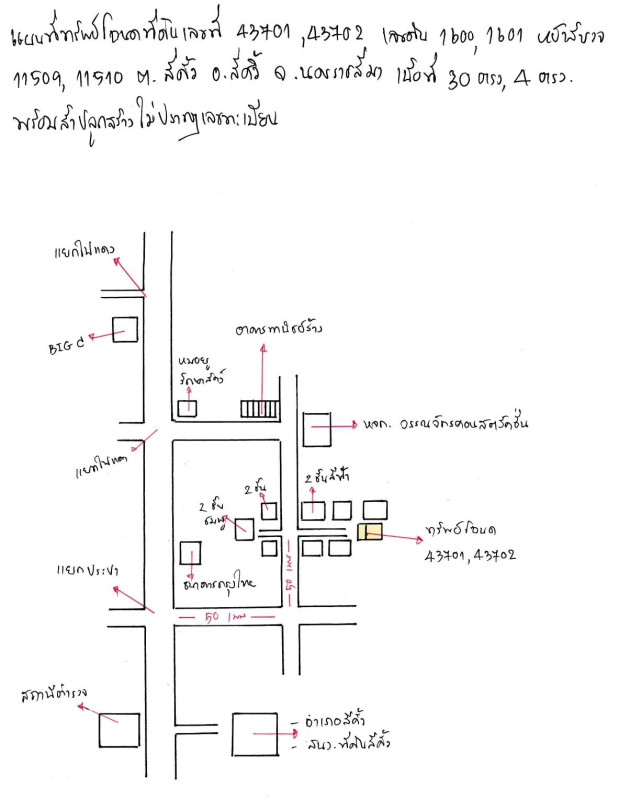 แผนที่ทรัพย์โฉนดที่ดินเลขที่ 43701, 43702 เลขดิน 1600, 1601 หน้าสำรวจ
11509, 11510 ต. สีคิ้ว อ. สีคิ้ว จ. นครราชสีมา เนื้อที่ 30 ตรว, 4 ตรว.
พร้อมสิ่งปลูกสร้างไม่ปรากฏเลขทะเบียน
แยกไฟแดง
BIG C
อาคารพาณิชย์ร้าง
หมอยู
รักษาสัตว์
หจก. วรรณจักรคอนสตรัคชั่น
แยกไฟแดง
2 ชั้น
2 ชั้นสีฟ้า
2 ชั้น
ชมพู
ทรัพย์โฉนด
43701, 43702
ธนาคารกรุงไทย
50 เมตร
แยกประปา
50 เมตร
สถานีตำรวจ
- อำเภอสีคิ้ว
- สนง. ที่ดินสีคิ้ว